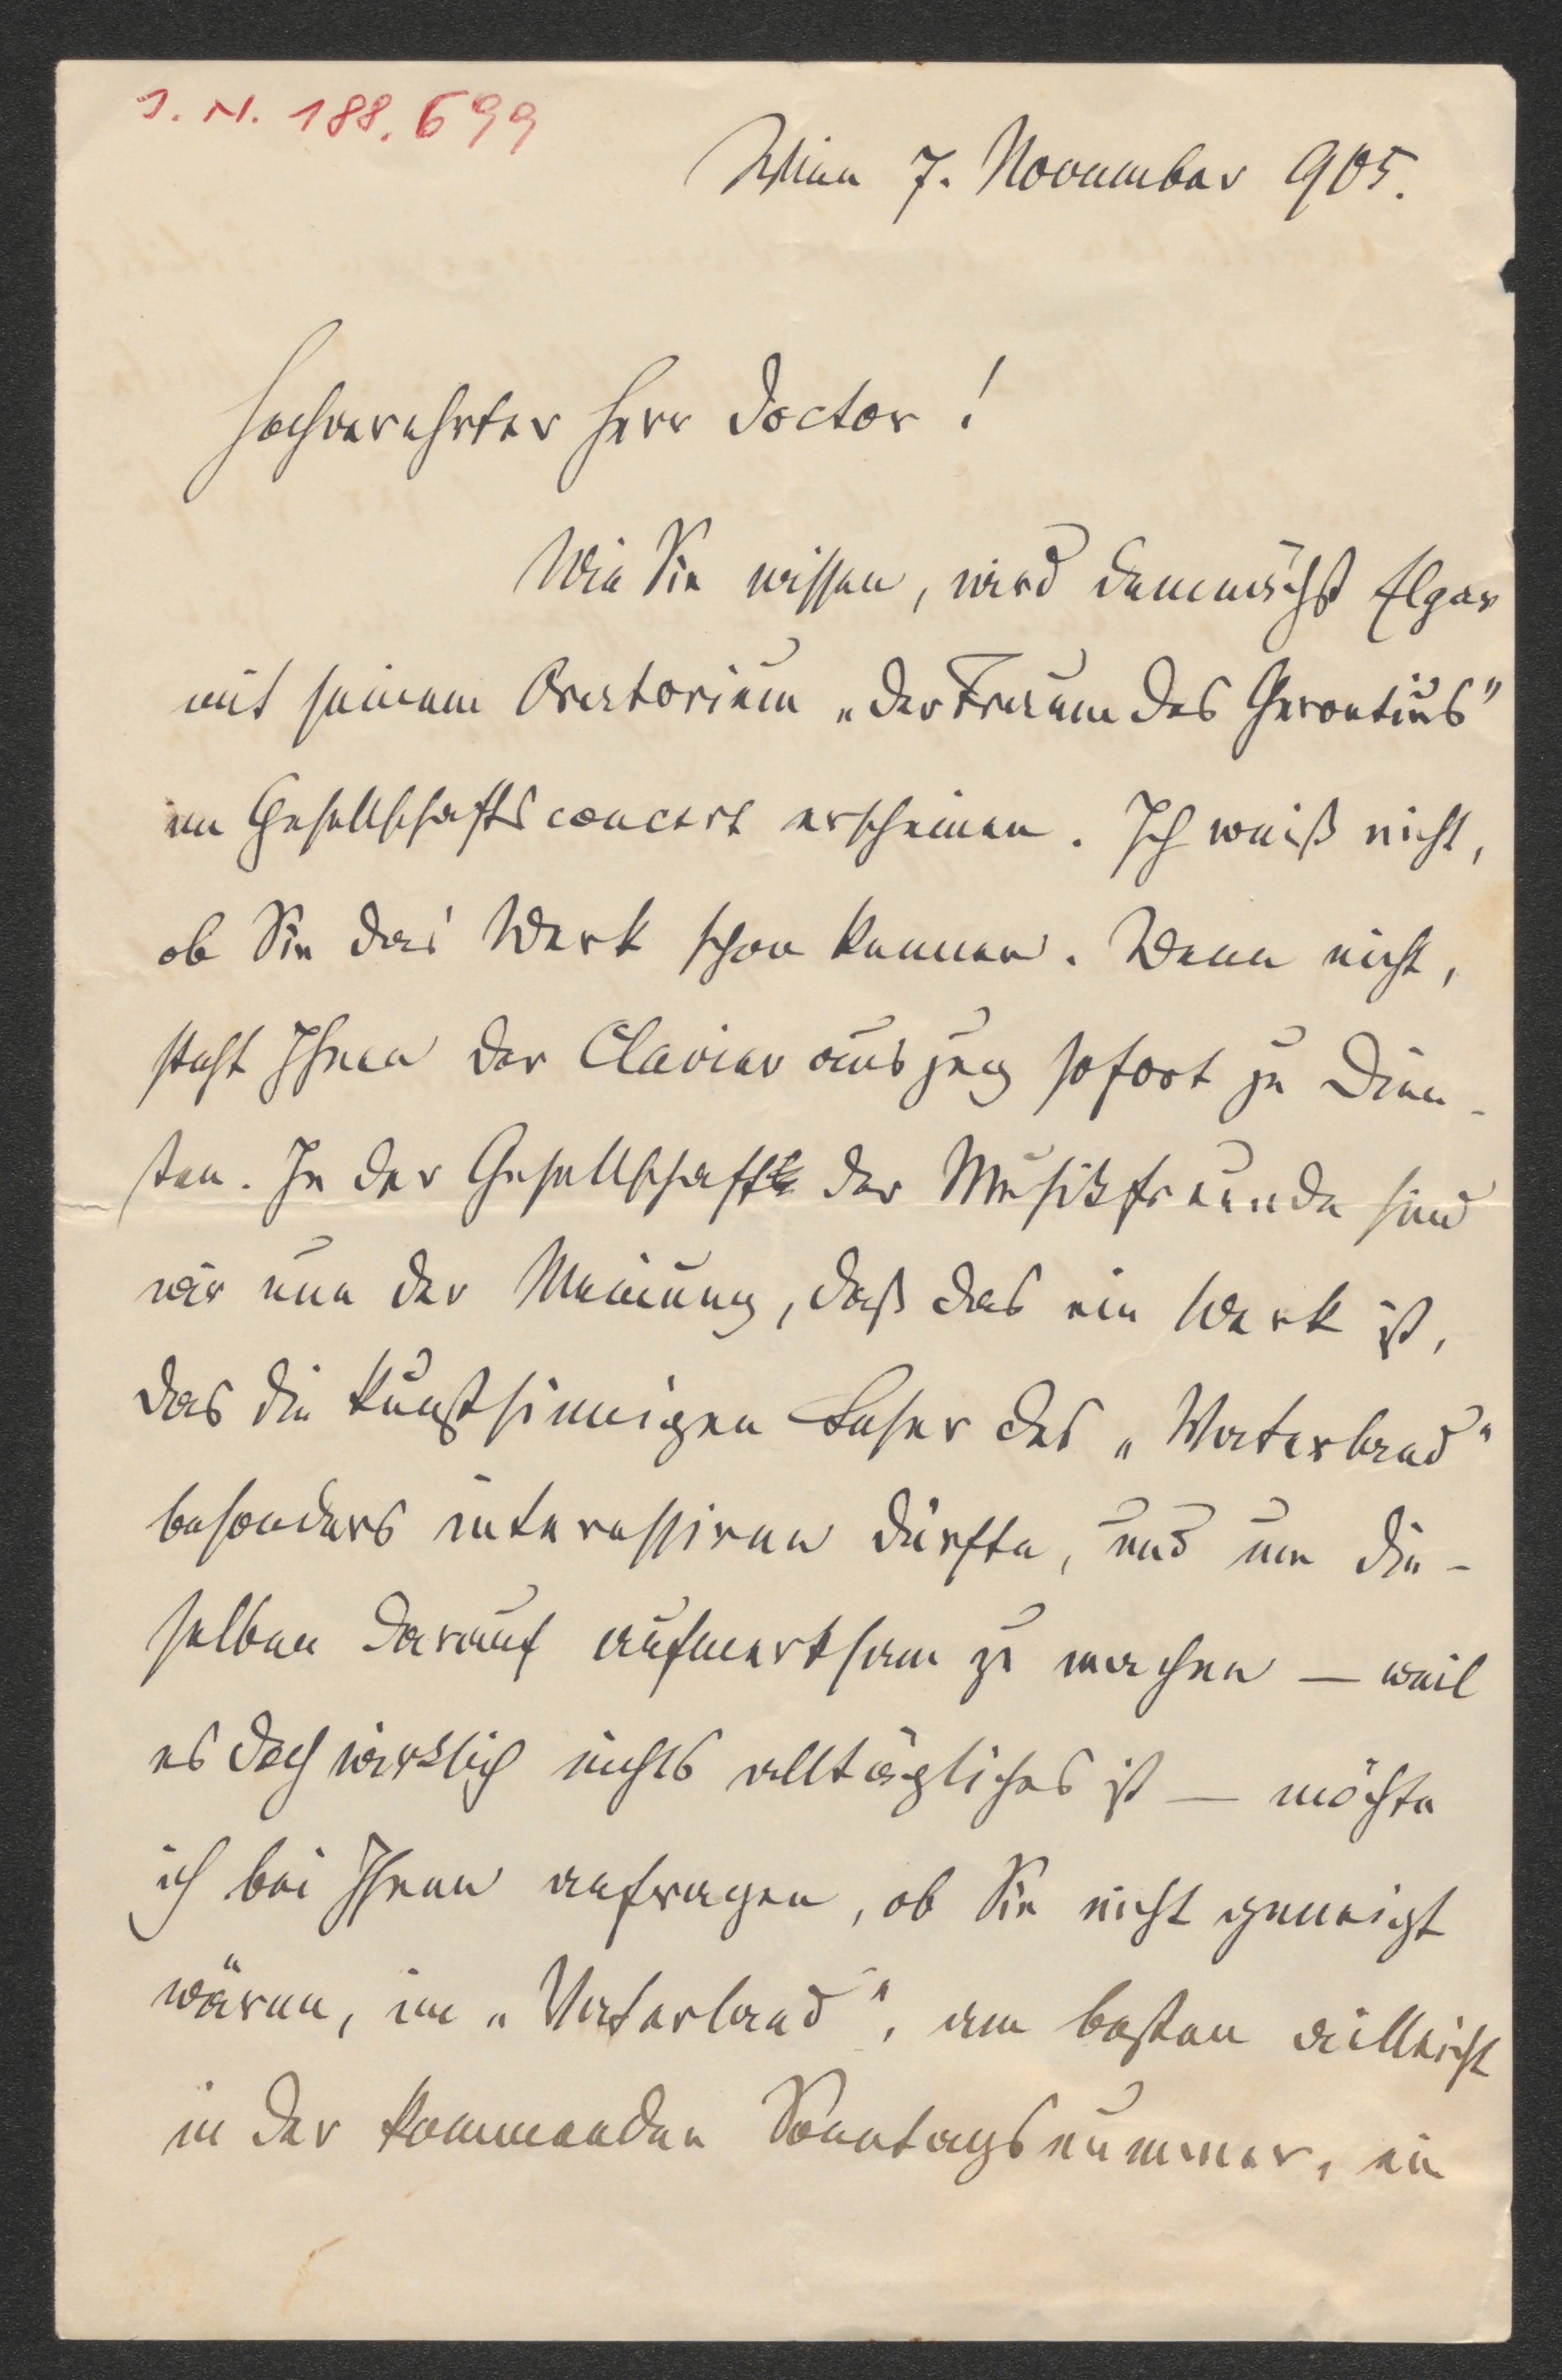 J. N. 188.699
Wien 7. November 905.
Hochverehrter Herr Doctor!
Wie Sie wissen, wird demnächst Elgar
mit seinem Oratorium „Der Traum des Gerontius"
im Gesellschaftsconcert erscheinen. Ich weiß nicht,
ob Sie das Werk schon kennen. Wenn nicht,
steht Ihnen der Clavierauszug sofort zu Dien-
sten. In der Gesellschaft der Musikfreunde sind
wir nun der Meinung, daß das ein Werk ist,
das die kunstsinnigen Leser des „Vaterland"
besonders interessiren dürfte, und um die-
selben darauf aufmerksam zu machen — weil
es doch wirklich nichts alltägliches ist — möchte
ich bei Ihnen anfragen, ob Sie nicht geneigt
wären, im „Vaterland", am besten vielleicht
in der kommenden Sonntagsnummer, ein